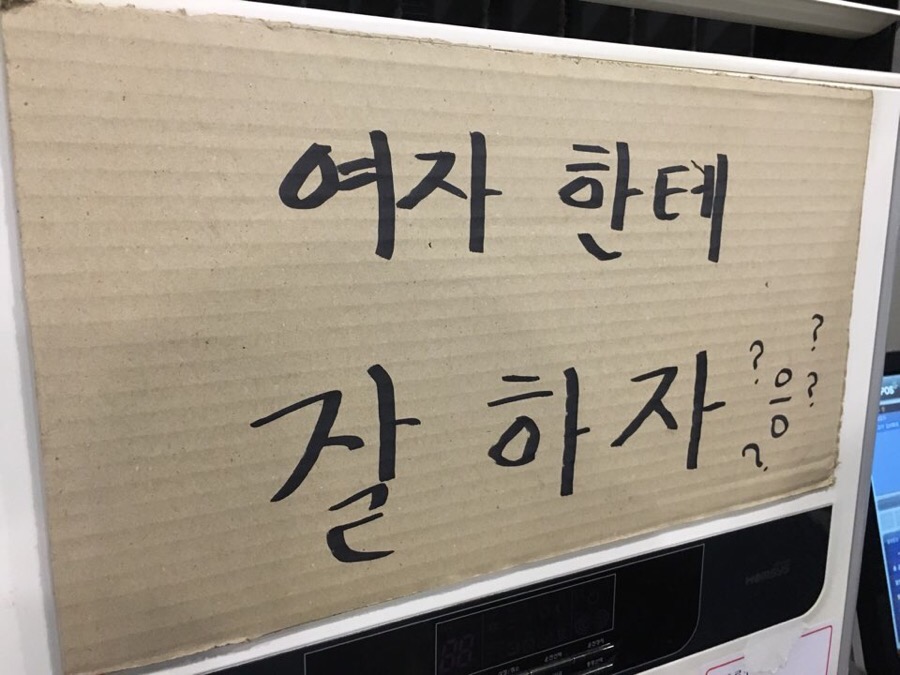 여자 한테
잘 하자
? ?
응 ?
?
POS